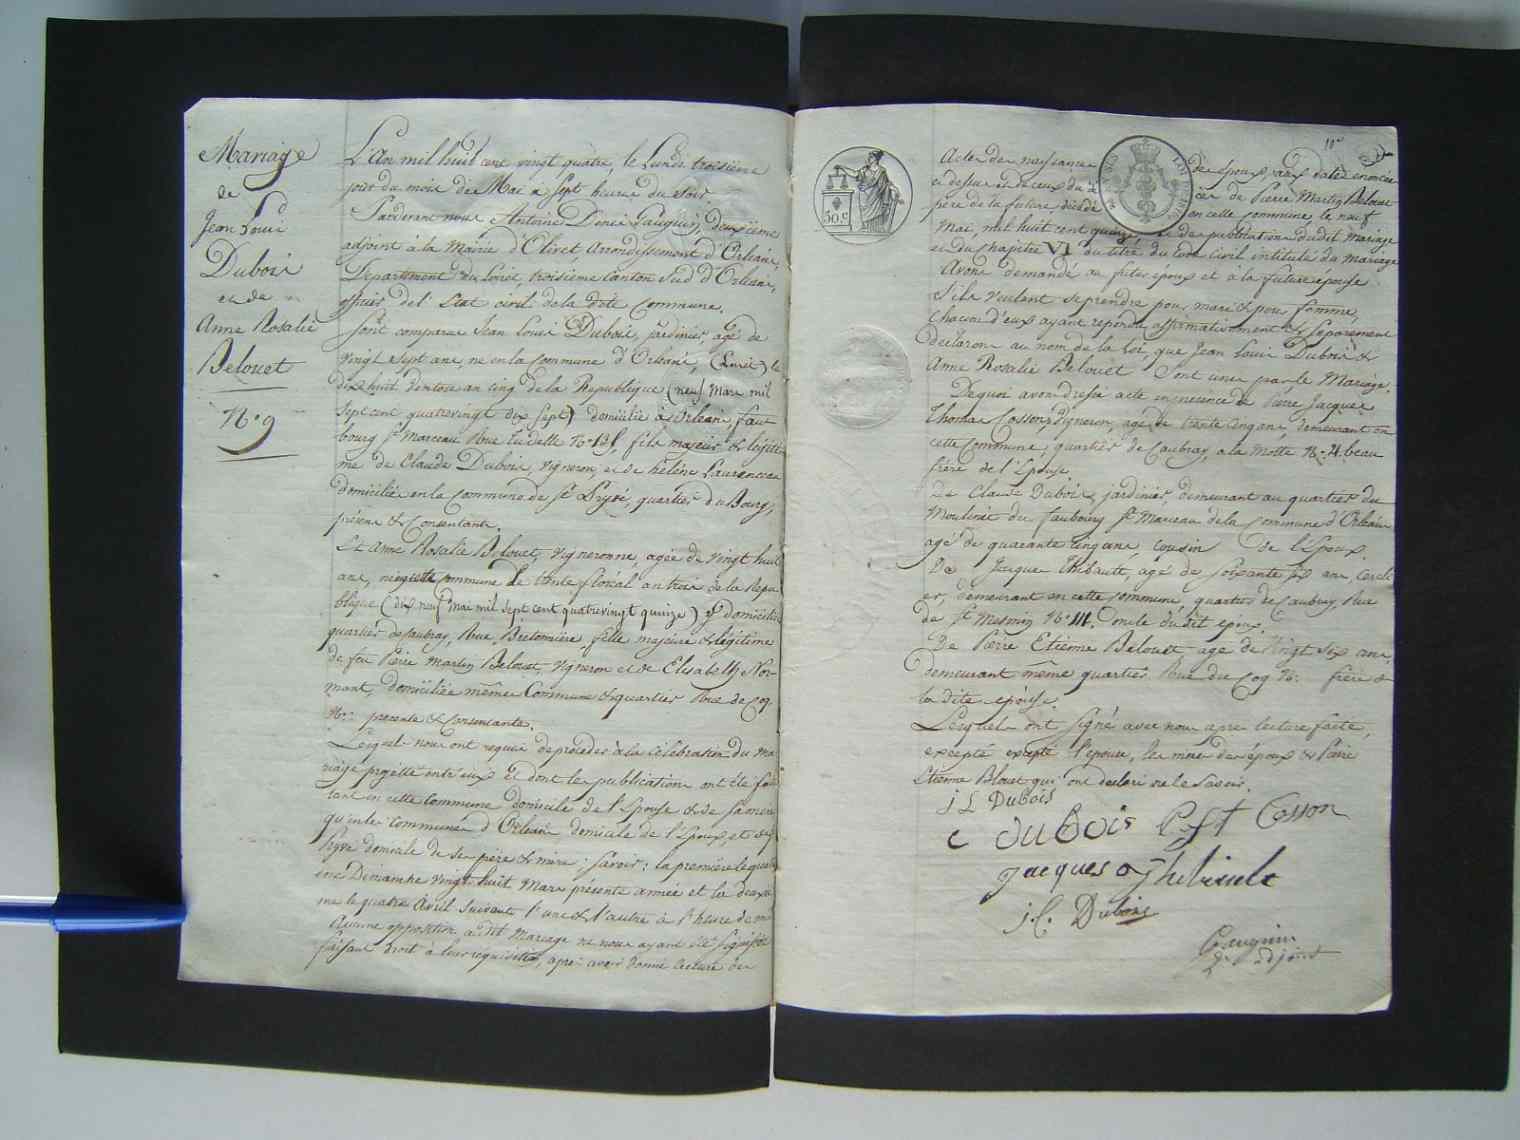 Mariage
de
Jean Louis
Dubois
et de
Anne Rosalie
Belouet
N.° 9
L'An mil huit cent vingt quatre, le Lundi troisième
jour du mois de Mai à Sept heures du Soir.
Pardevant nous Antoine Denis Jauguin, deuxième
adjoint à la Mairie d'Olivet, Arrondissement d'Orléans,
Département du Loiret, troisième Canton Sud d'Orléans,
officier de l'Etat civil de la dite Commune.
Sont comparus Jean Louis Dubois, jardinier, agé de
vingt sept ans, né en la Commune d'Orléans, (Loiret) le
dix huit Ventose an cinq de la République (neuf Mars mil
Sept cent quatrevingt dix Sept) domicilié à Orléans, faux
bourg St. Marceau Rue tudelle N.° 131, fils majeur & légiti
me de Claude Dubois, Vigneron, et de héléne Laurenceau
domiciliés en la Commune de St. Pryvé, quartier du Bourg,
présens & Consentants.
Et Anne Rosalie Belouet, Vigneronne, agée de vingt huit
ans, née en cette commune le trente floréal an trois de la Répu
blique (dix neuf mai mil sept cent quatrevingt quinze) y domiciliée
quartier de Caubray, Rue Bretonnière fille majeure & légitime
de feu Pierre Martin Belouet, Vigneron et de Elisabeth Nor-
mant, domiciliée même Commune & quartier Rue du Coq
N.° présente & Consentante.
Lesquels nous ont requis de procéder à la célébration du Ma
riage projetté entr'eux Et dont les publications ont été fai
tes en cette Commune domicile de l'Epouse & de sa mère
qu'en les communes d'Orléans domicile de l'Epoux, et de St.
Pryvé domicile de ses père & mère; Savoir: la première le quel
ème Dimanche vingt huit Mars présente année et la deuxiè
me le quatre Avril Suivant l'une & l'autre à l'heure de midi
Aucune opposition au dit Mariage ne nous ayant été Signifiée
faisant droit à leur réquisition, après avoir donné lecture des
Actes de naissance des Epoux, aux dates énoncées
ci dessus et de ceux du décès de Pierre Martin Belouet
père de la future, décédé en cette commune le neuf
Mai, mil huit cent quinze de publication du dit mariage
et du chapitre VI du titre du Code civil intitulé du mariage
Avons demandé au futur époux et à la future épouse
S'ils veulent se prendre pour mari & pour femme,
chacun d'eux ayant répondu affirmativement & Séparément
déclarons au nom de la loi, que Jean Louis Dubois &
Anne Rosalie Belouet Sont unis par le Mariage.
De quoi avons dressé acte en présence de Pierre Jacques
Thomas Cosson, Vigneron, agé de trente cinq ans, demeurant en
cette Commune, quartier de Caubray, à la Motte N.° 4. beau
frère de l'Epouse.
De Claude Dubois, jardinier, demeurant au quartier du
Moulinet du faubourg St. Marceau de la Commune d'Orléans
agé de quarante cinq ans, cousin de l'Epoux.
De Jacques Thibault, agé de soixante six ans, cercli
er, demeurant en cette commune, quartier de Caubray, Rue
de St. Mesmin N.° 111. Oncle du dit époux.
De Pierre Etienne Belouet agé de Vingt Six ans,
demeurant même quartier, Rue du Coq N.° frère de
la dite epouse.
Lesquels ont Signé avec nous après lecture faite,
excepté excepté l'épouse, les mères des époux & Pierre
Etienne Blouet qui ont déclaré ne le Savoir.
J L DuBois
C DuBois P J T Cosson
Jacques Thibault
j. C. Dubois
Jauguin
2e adjoint
30. C